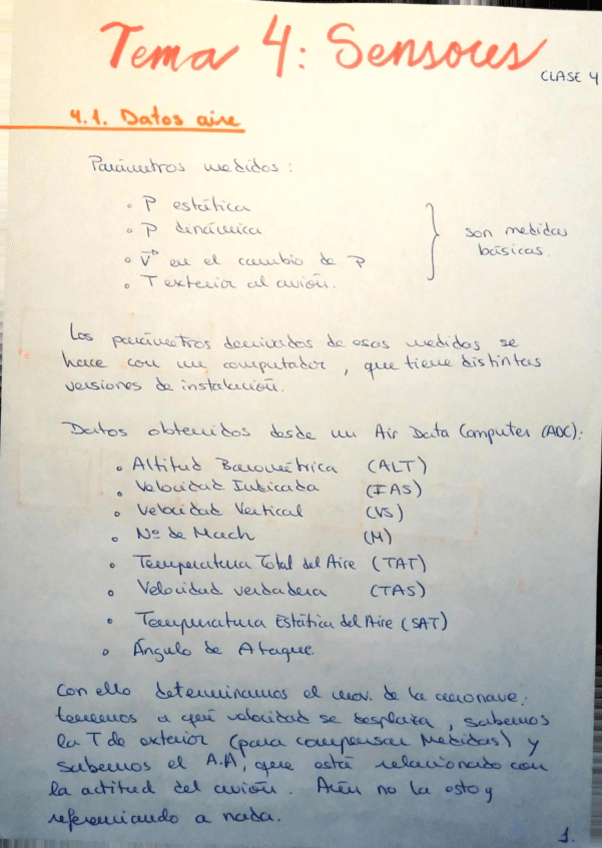 Tema 4: Sensores
CLASE 4
4.1. Datos aire
Parámetros medidos:
• P estática
• P dinámica
• V en el cambio de P
• T exterior al avión.
son medidas
básicas.
Los parámetros derivados de esas medidas se
hace con un computador, que tiene distintas
versiones de instalación.
Datos obtenidos desde un Air Data Computer (ADC):
• Altitud Barométrica (ALT)
• Velocidad Indicada (IAS)
• Velocidad Vertical (VS)
• Nº de Mach (M)
• Temperatura Total del Aire (TAT)
• Velocidad verdadera (TAS)
• Temperatura Estática del Aire (SAT)
• Ángulo de Ataque.
Con ello determinamos el mov. de la aeronave:
tenemos a qué velocidad se desplaza, sabemos
la T de exterior (para compensar medidas) y
sabemos el A.A, que está relacionado con
la actitud del avión. Aún no la estoy
referenciando a nada.
1.